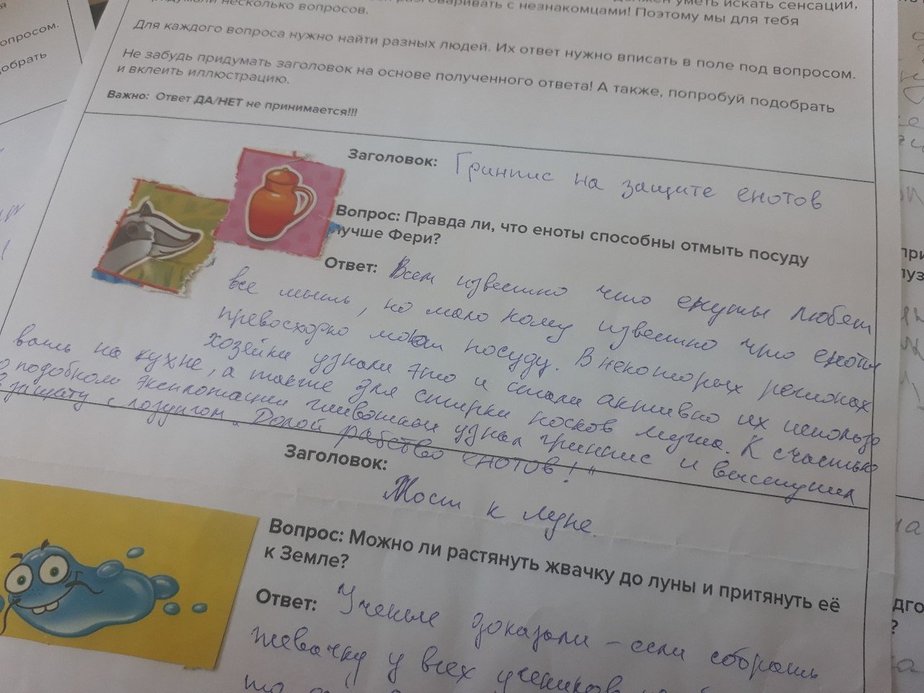 должен уметь искать сенсации,
разговаривать с незнакомцами! Поэтому мы для тебя
несколько вопросов.
Для каждого вопроса нужно найти разных людей. Их ответ нужно вписать в поле под вопросом.
Не забудь придумать заголовок на основе полученного ответа! А также, попробуй подобрать
и вклеить иллюстрацию.
Важно: Ответ ДА/НЕТ не принимается!!!
Заголовок: Гринпис на защите енотов
Вопрос: Правда ли, что еноты способны отмыть посуду
лучше Фери?
Ответ: Всем известно что енуты любят
все мыть, но мало кому известно что еноты
превосходно моют посуду. В некоторых регионах
хозяйки узнали это и стали активно их исполь
вать на кухне, а также для стирки носков мужа. К счастью
о подобном эксплотации животных узнал гринпис и выступил
в защиту с лозунгом "Долой рабство енотов!"
Заголовок:
Мост к луне.
Вопрос: Можно ли растянуть жвачку до луны и притянуть её
к Земле?
Ответ: Ученые доказали - если собрать
жевачку у всех учеников